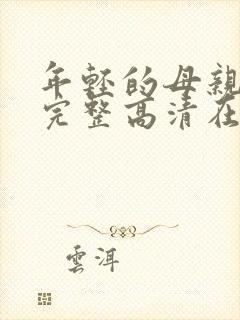 年軽的母親
完整高清在
雲洱